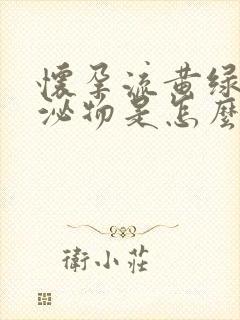 懷孕流黃綠
泌物是怎麼
衛小莊